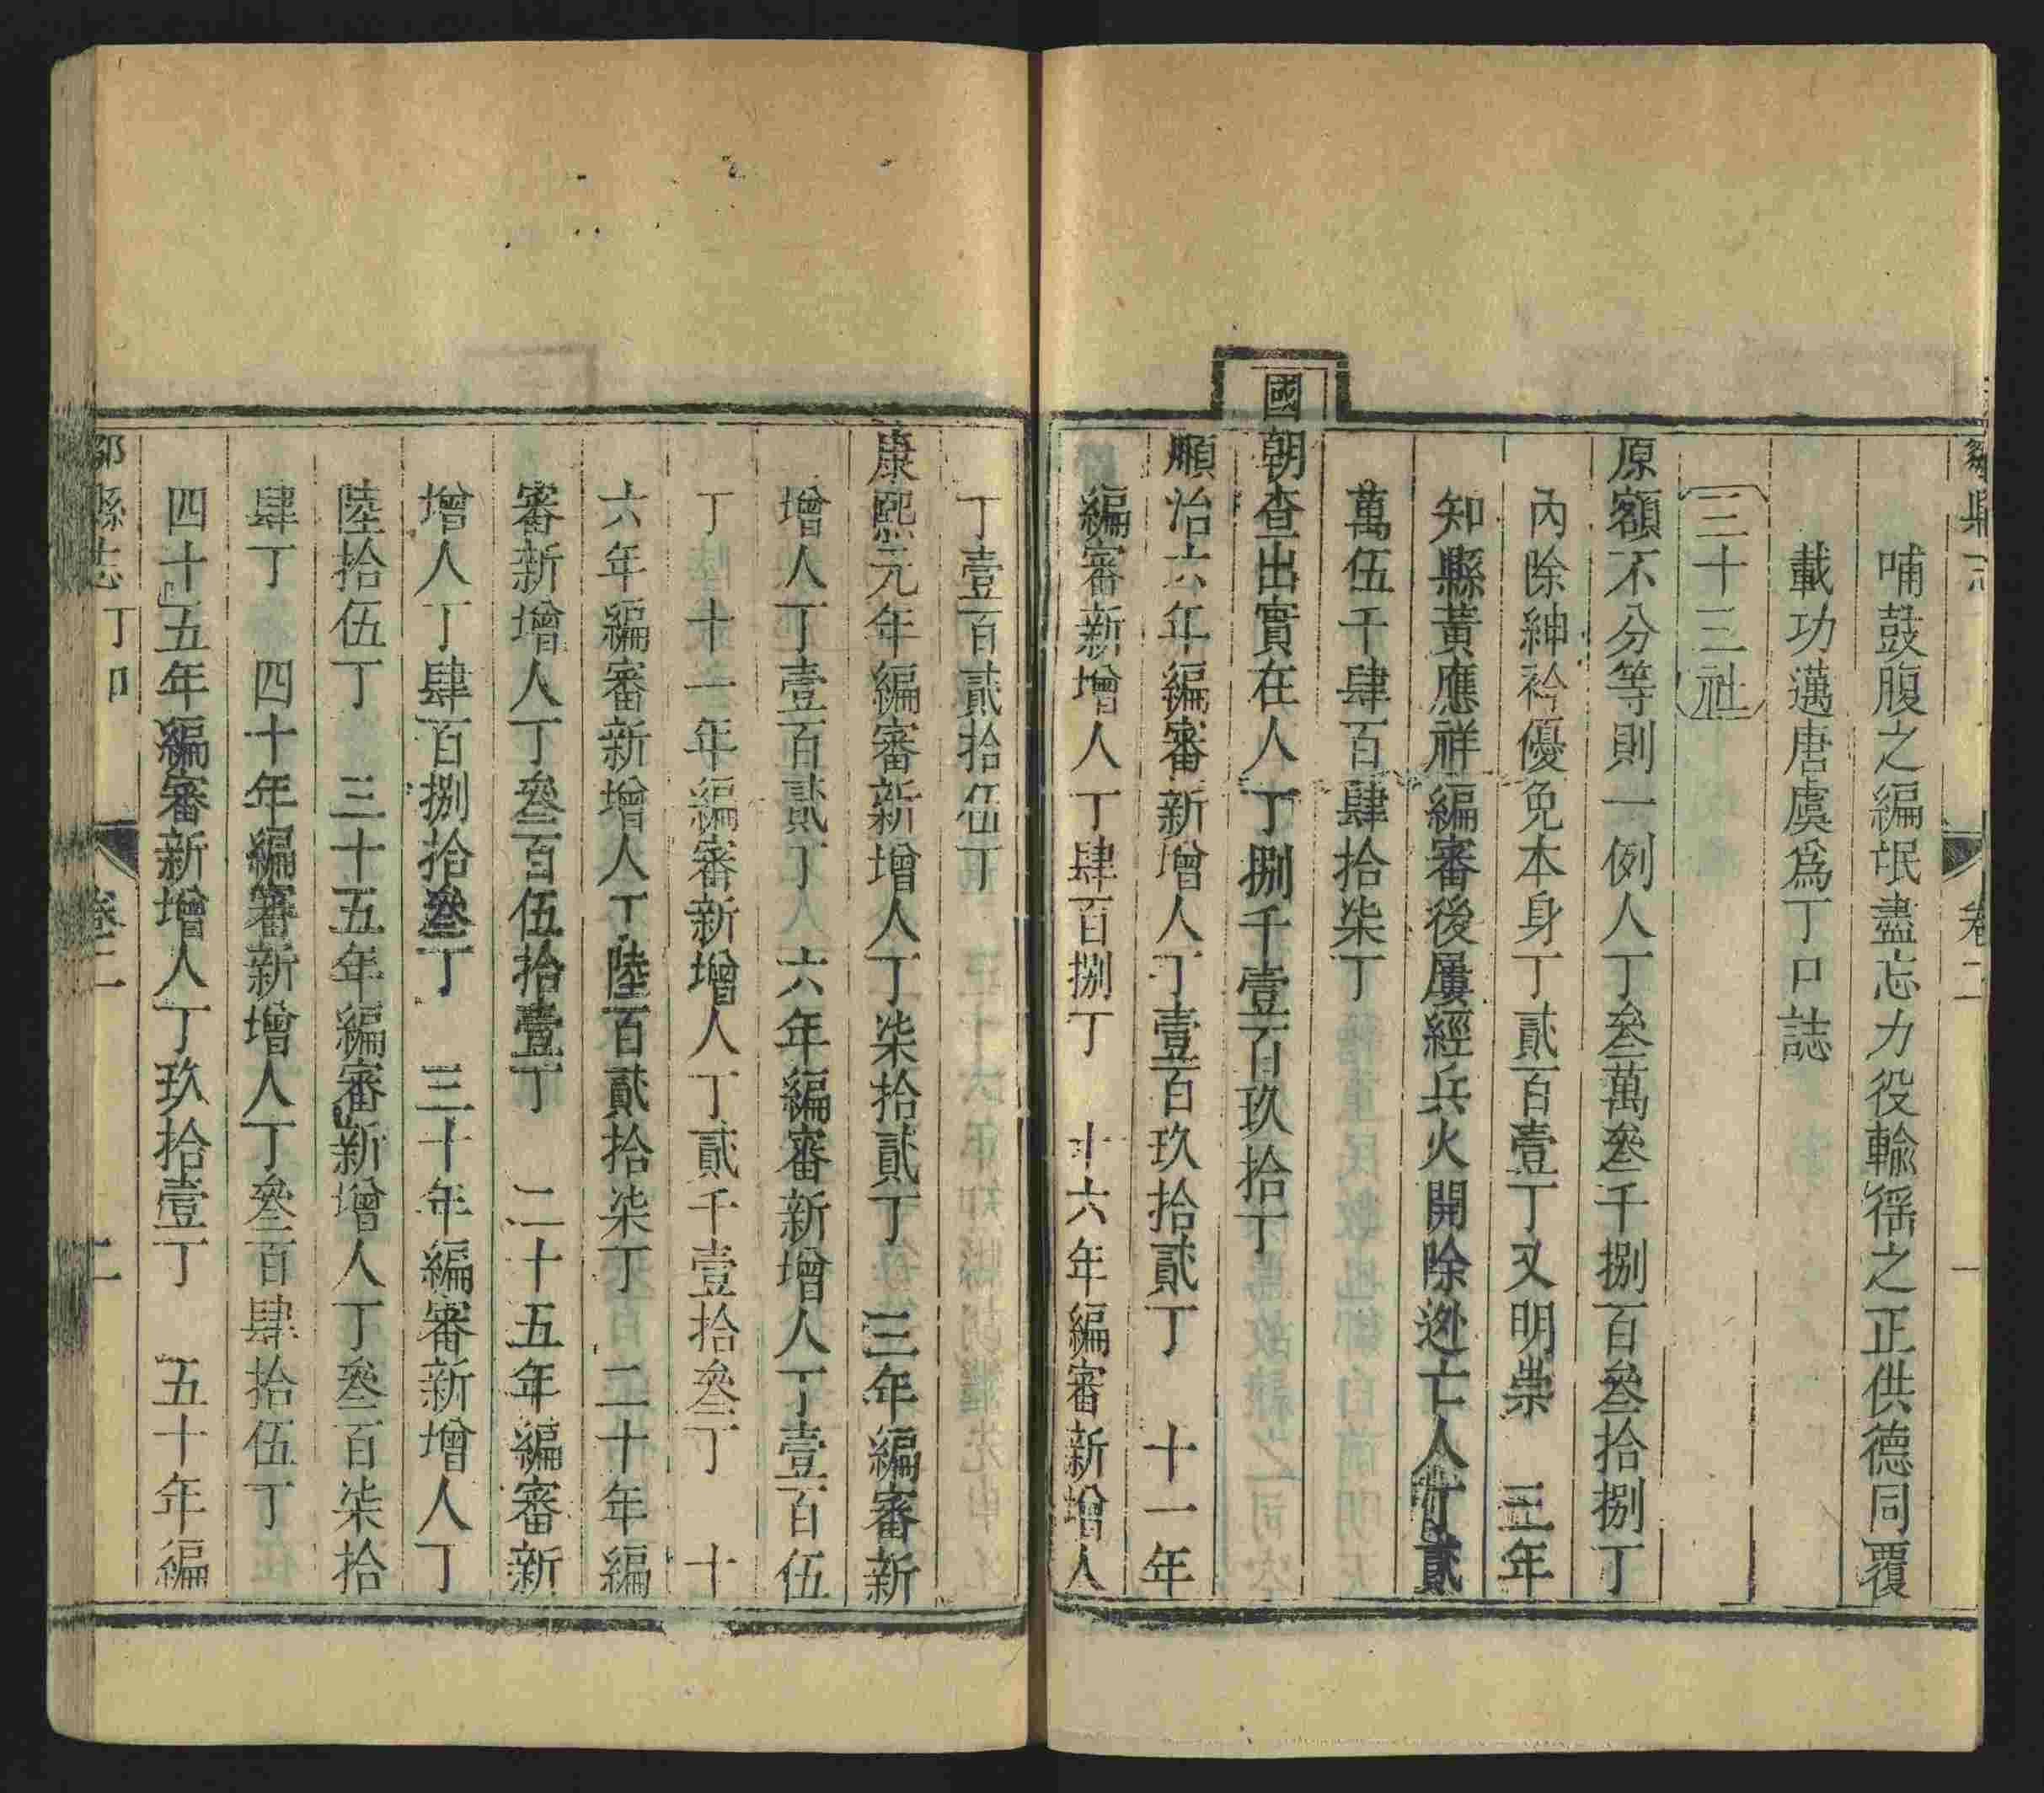 卷二
一
哺鼓腹之編氓盡忘力役輸徭之正供德同覆
載功邁唐虞爲丁口誌
三十三社
原額不分等則一例人丁叁萬叁千捌百叁拾捌丁
內除紳衿優免本身丁貳百壹丁又明崇 三年
知縣黃應祥編審後屢經兵火開除逃亡人丁貳
萬伍千肆百肆拾柒丁
國朝查出實在人丁捌千壹百玖拾丁
順治六年編審新增人丁壹百玖拾貳丁 十一年
編審新增人丁肆百捌丁 十六年編審新增人
丁壹百貳拾伍丁
康熙元年編審新增人丁柒拾貳丁 三年編審新
增人丁壹百貳丁 六年編審新增人丁壹百伍
丁 十一年編審新增人丁貳千壹拾叁丁 十
六年編審新增人丁陸百貳拾柒丁 二十年編
審新增人丁叁百伍拾壹丁 二十五年編審新
增人丁肆百捌拾叁丁 三十年編審新增人丁
陸拾伍丁 三十五年編審新增人丁叁百柒拾
肆丁 四十年編審新增人丁叁百肆拾伍丁
四十五年編審新增人丁玖拾壹丁 五十年編
縣志 丁口 卷二 二